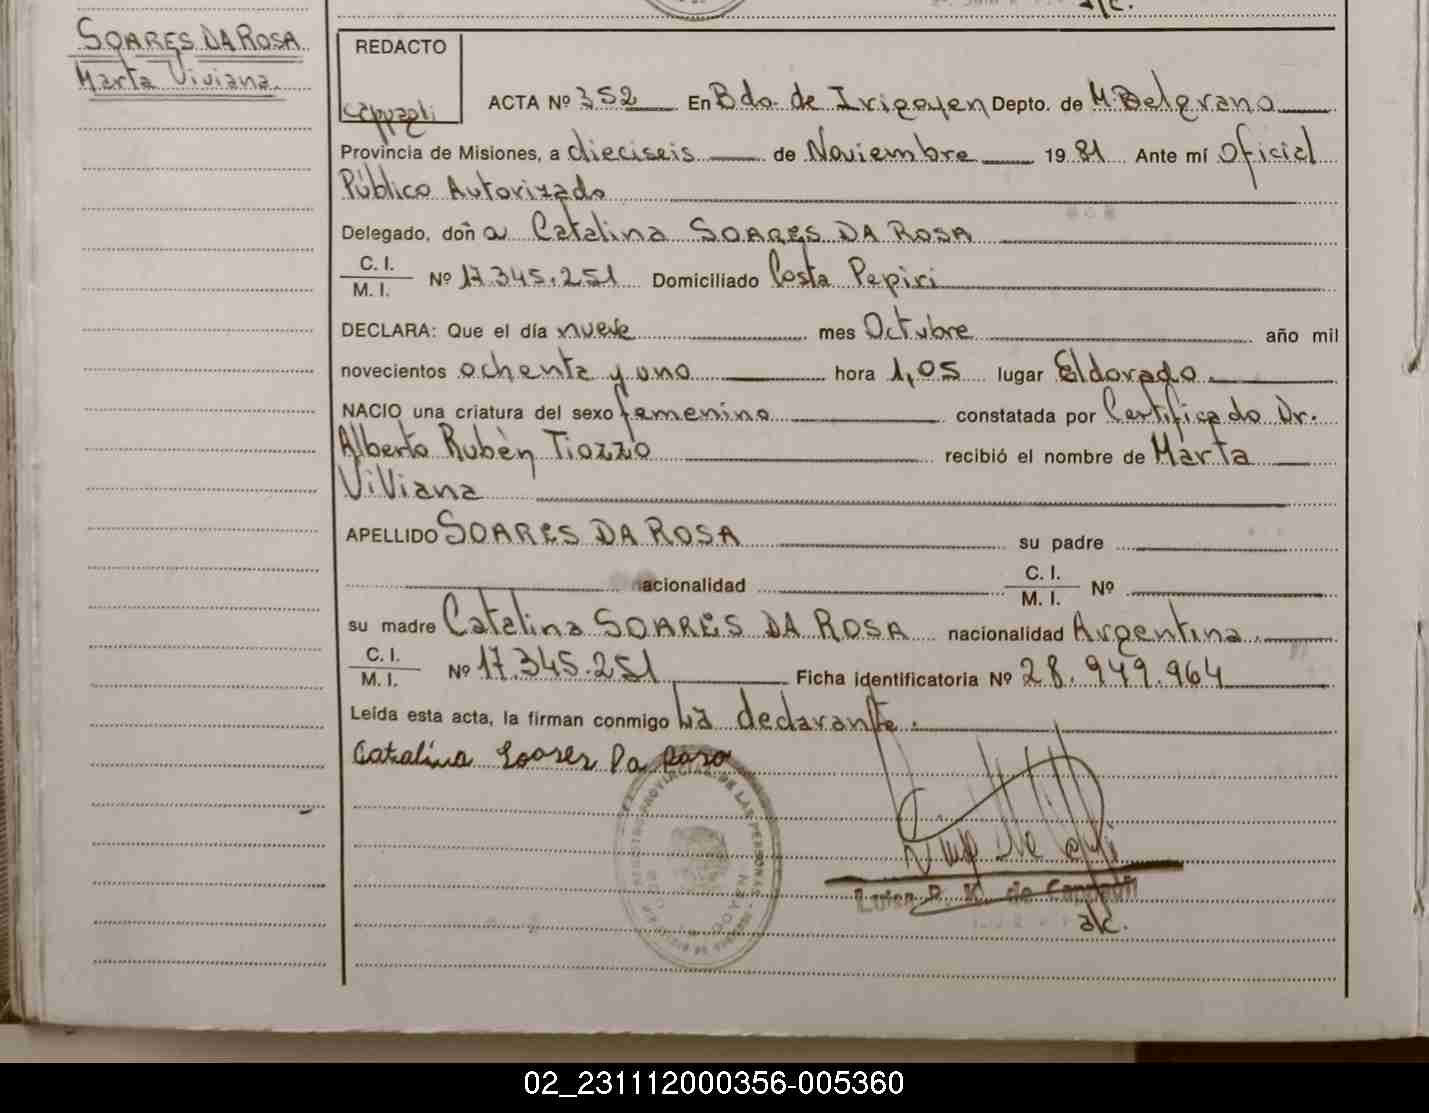 SOARES DA ROSA
Marta Viviana.
REDACTO
Cappagli
ACTA Nº 352 En Bdo. de Irigoyen Depto. de M. Belgrano
Provincia de Misiones, a dieciseis de Noviembre 1981 Ante mí Oficial
Público Autorizado
Delegado, doña Catalina SOARES DA ROSA
C. I.
M. I. Nº 17.345.251 Domiciliado Costa Pepiri
DECLARA: Que el día nueve mes Octubre año mil
novecientos ochenta y uno hora 1,05 lugar Eldorado
NACIO una criatura del sexo femenino constatada por Certificado Dr.
Alberto Rubén Tiozzo recibió el nombre de Marta
Viviana
APELLIDO SOARES DA ROSA su padre
nacionalidad C. I. M. I. Nº
su madre Catalina SOARES DA ROSA nacionalidad Argentina.
C. I.
M. I. Nº 17.345.251 Ficha identificatoria Nº 28.949.964
Leída esta acta, la firman conmigo La declarante.
Catalina Soares Da Rosa
REGISTRO PROVINCIAL DE LAS PERSONAS
Luisa P. K. de Cappagli
a/c.
02_231112000356-005360